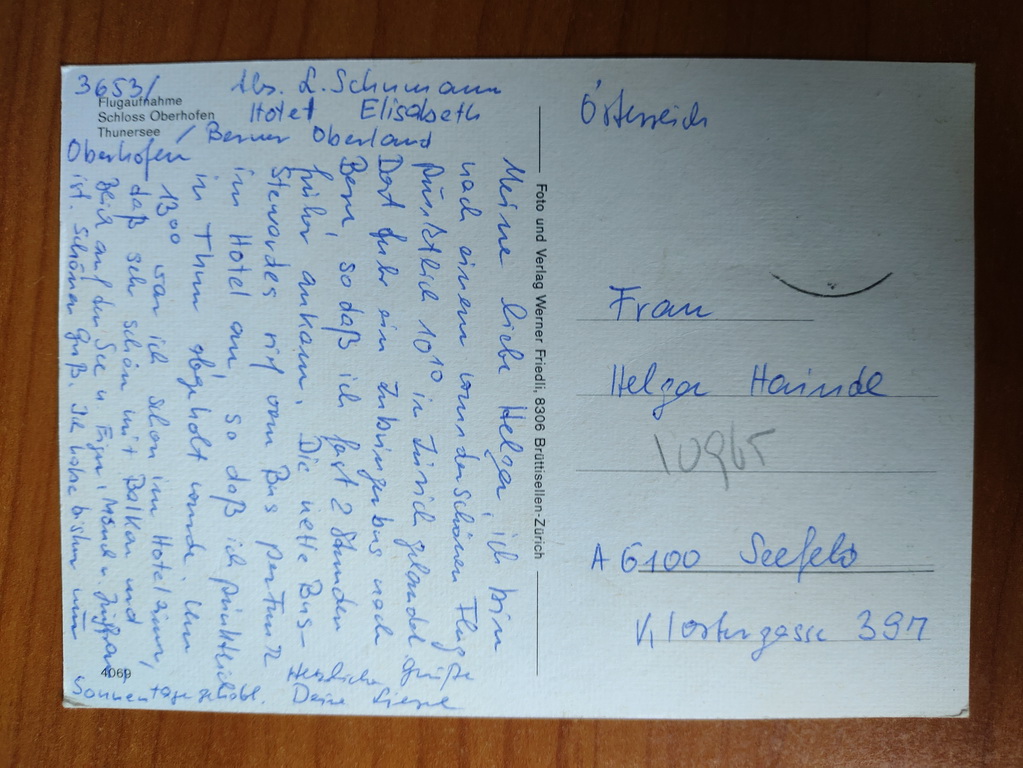 3653/
Flugaufnahme
Schloss Oberhofen
Thunersee
Abs. L. Schumann
Hotel Elisabeth
Oberhofen / Berner Oberland
Meine liebe Helga, ich bin
nach einem wunderschönen Flug
pünktlich 10¹⁰ in Zürich gelandet
Dort fuhr ein Zubringerbus nach
Bern sodaß ich fast 2 Stunden
früher ankam. Die nette Bus-
Stewardes rif vom Bus per Funk
im Hotel an, so daß ich pünktlich
in Thun abgeholt wurde. Um
13⁰⁰ war ich schon im Hotelzimm,
daß sehr schön mit Balkon und
Blick auf den See u. Eiger, Mönch u. Jungfrau
ist. Schönen Gruß. Ich habe bisher nur
Sonnentage gehabt.
Herzliche Grüße
Deine
Foto und Verlag Werner Friedli, 8306 Brüttisellen-Zürich
4069
Österreich
Frau
Helga Haindl
10965
A 6100 Seefeld
Klostergasse 397